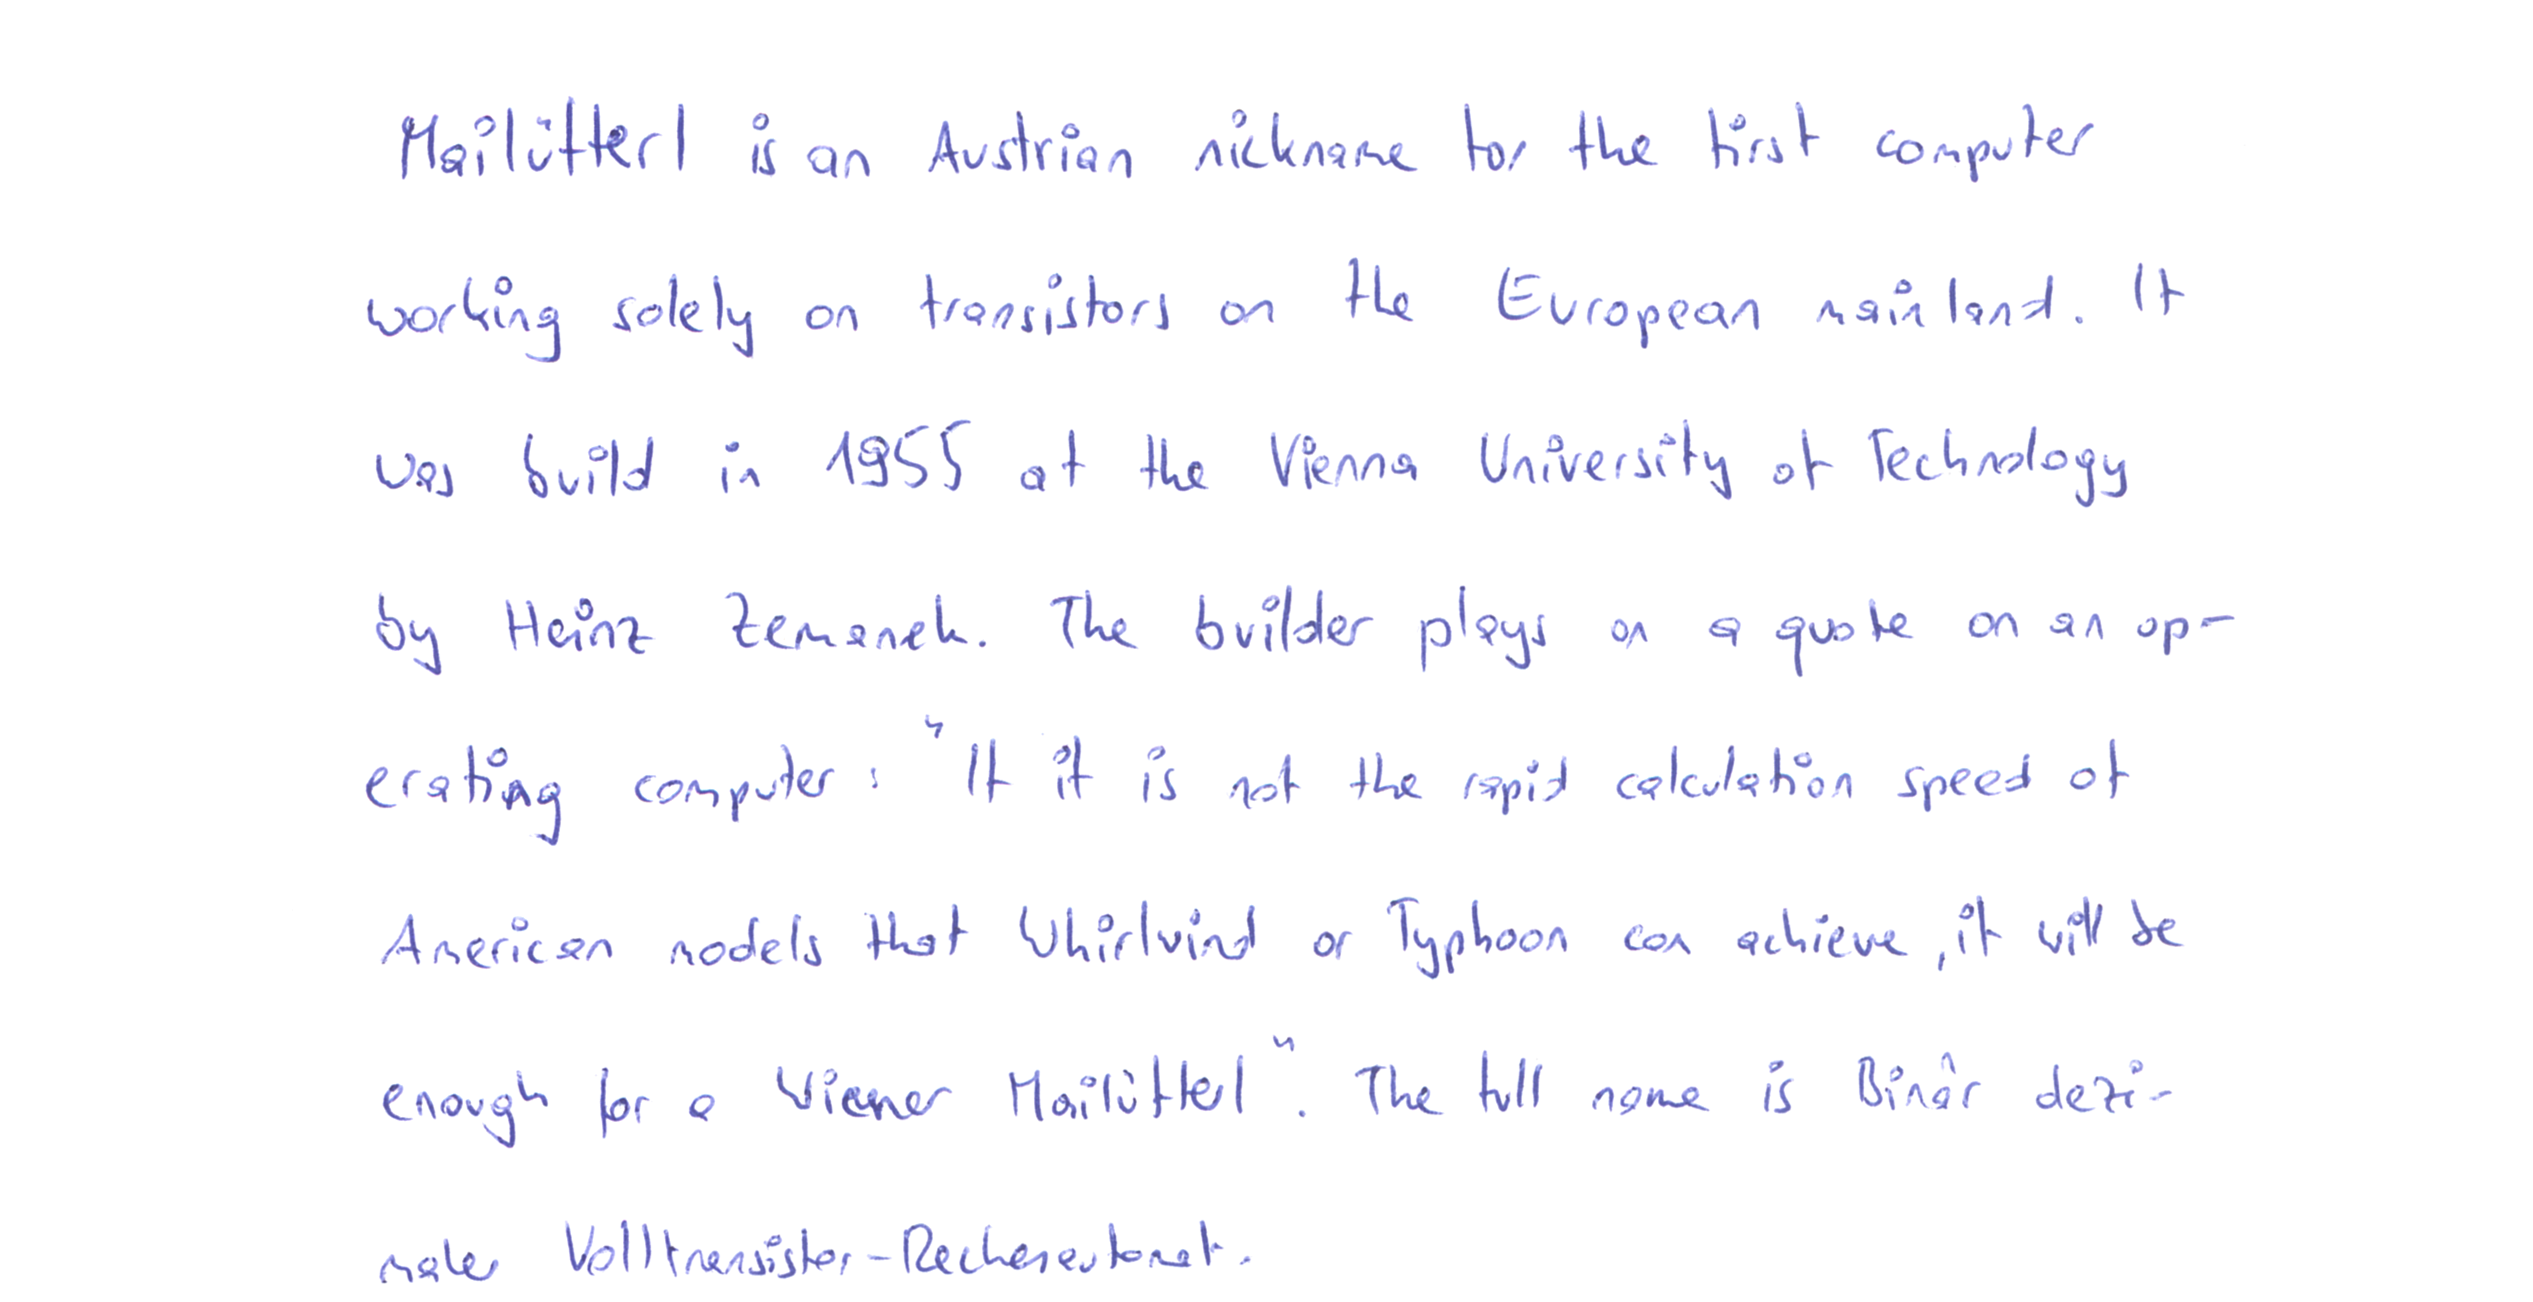 Mailüfterl is an Austrian nickname for the first computer
working solely on transistors on the European mainland. It
was build in 1955 at the Vienna University of Technology
by Heinz Zemanek. The builder plays on a quote on an op-
erating computer: "If it is not the rapid calculation speed of
American models that Whirlwind or Typhoon can achieve, it will be
enough for a Wiener Mailüfterl". The full name is Binär dezi-
maler Volltransistor-Rechenautomat.